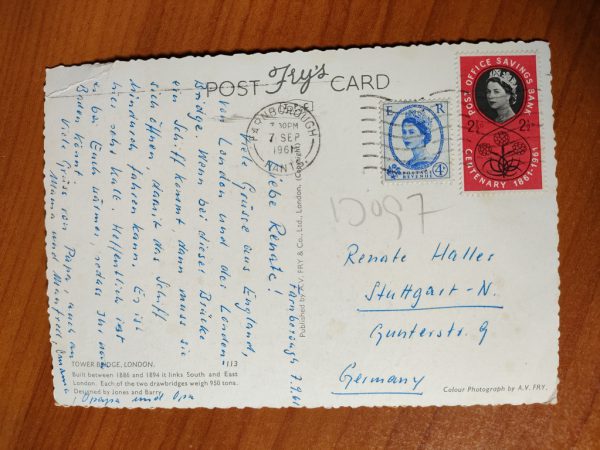 POST Fry's CARD
FARNBOROUGH
7 SEP
1961
HANTS
E R
POSTAGE
REVENUE
4D
POST OFFICE SAVINGS BANK
2½D 2½D
CENTENARY 1861-1961
Farnborough 7.9.61
Liebe Renate!
Viele Grüsse aus England,
von London und der London-
Bridge. Wenn bei dieser Brücke
ein Schiff kommt, dann muss sie
sich öffnen, damit das Schiff
hindurch fahren kann. Er ist
hier sehr kalt. Hoffentlich ist
es bei Euch wärmer, sodass Ihr
Baden könnt.
Viele Grüsse von Papa auch an
Mama und Manfred, Omama,
Opapa und Opa
Published by A.V. FRY & Co., Ltd., London.
Renate Haller
Stuttgart-N.
Günterstr. 9
Germany
TOWER BRIDGE, LONDON. 113
Built between 1886 and 1894 it links South and East
London. Each of the two drawbridges weigh 950 tons.
Designed by Jones and Barry.
Colour Photograph by A.V. FRY.